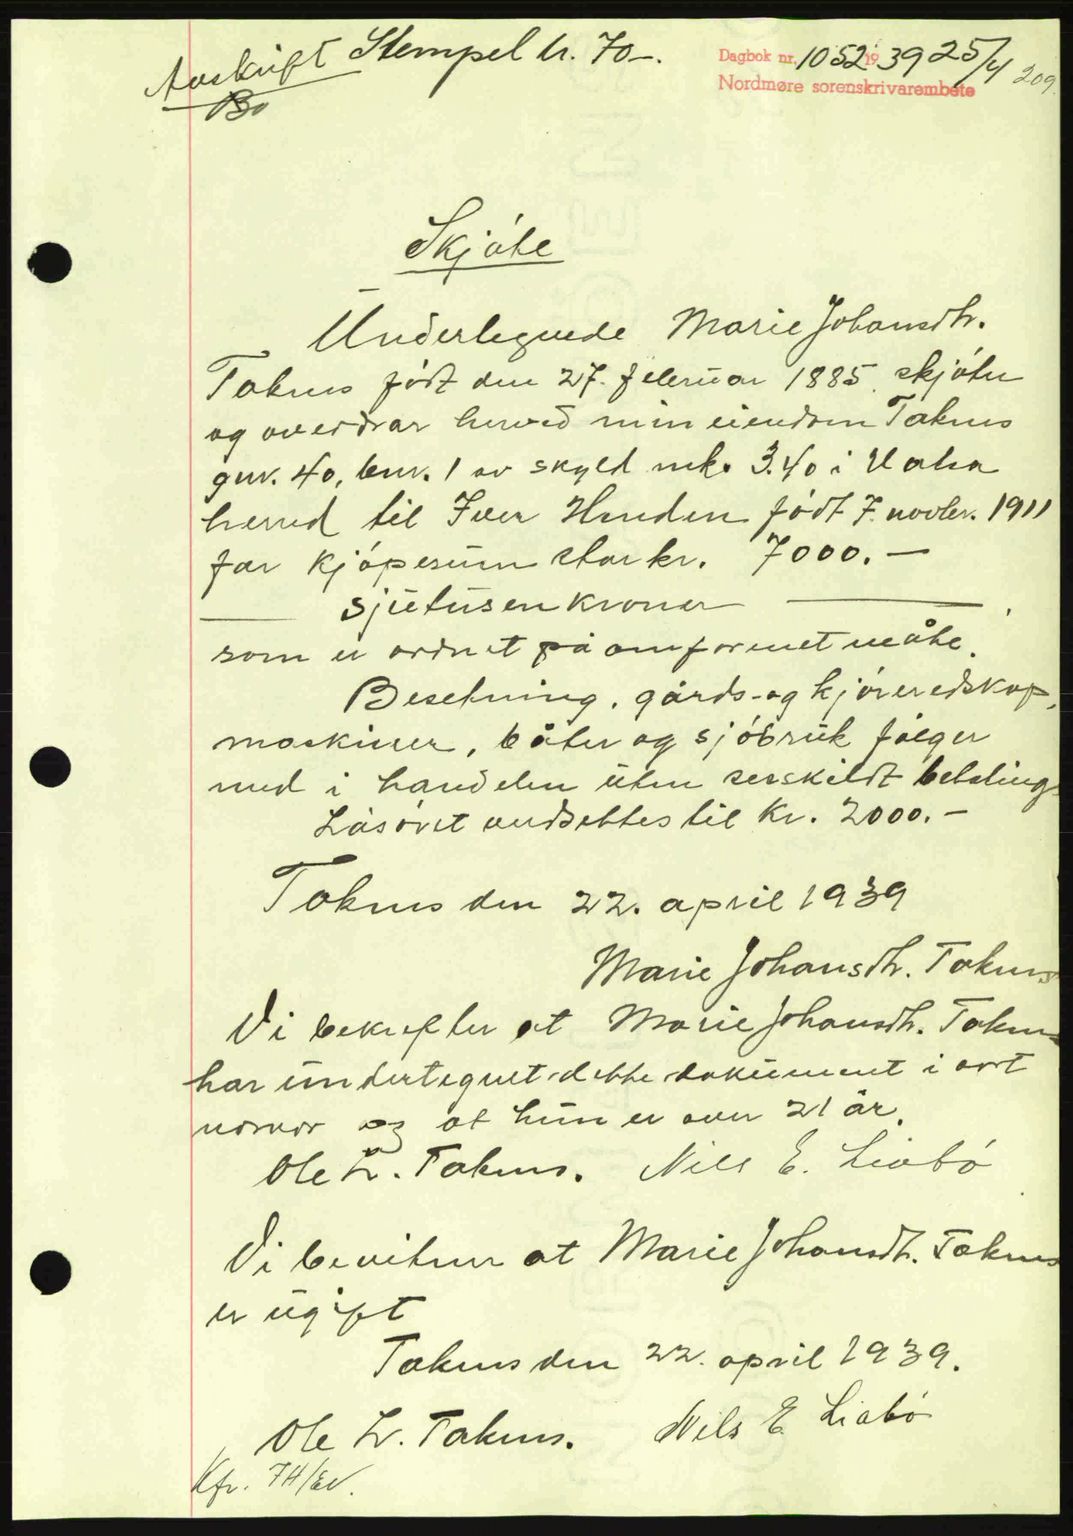 Avskrift Stempel kr. 70-.
Bo
Dagbok nr. 1052 19 39 25/4
Nordmøre sorenskrivarembete
209.
Skjøte
Undertegnede Marie Johansdtr.
Taknes født den 27. februar 1885 skjøter
og overdrar herved min eiendom Taknes
gnr. 40, bnr. 1 av skyld mk. 3.40 i Valsø
herred til Iver Henden født 7. novbr. 1911
for kjøpesum stor kr. 7000.-
sjutusen kroner
som er ordnet på omforenet måte.
Besetning, gårds- og kjøreredskap,
maskiner, båter og sjøbruk følger
med i handelen uten serskildt betaling
Løsøret verdsettes til kr. 2000.-
Taknes den 22. april 1939
Marie Johansdtr. Taknes
Vi bekrefter at Marie Johansdtr. Taknes
har undertegnet dette dokument i vort
nærvær og at hun er over 21 år.
Ole L. Taknes. Nils E. Liabø
Vi bevitner at Marie Johansdtr. Taknes
er ugift
Taknes den 22. april 1939.
Ole L. Taknes. Nils E. Liabø
Kfr. TH/EV.